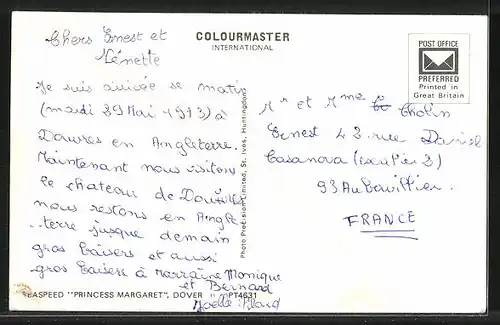 COLOURMASTER
INTERNATIONAL
POST OFFICE
PREFERRED
Printed in
Great Britain
Chers Ernest et
Nénette
Je suis arrivée se matin
(mardi 29 Mai 1973) à
Douvres en Angleterre.
Maintenant nous visitons
le chateau de
nous restons en Angle-
-terre jusque demain
gros baisers et aussi
gros baisers à marraine Monique
et Bernard
Joëlle
Mr et Mme Cholin
Ernest 43 rue Daniel
Casanova (escalier 3)
93 Aubervillier.
FRANCE
Photo Precision Limited, St. Ives, Huntingdon
SEASPEED "PRINCESS MARGARET", DOVER PT4631